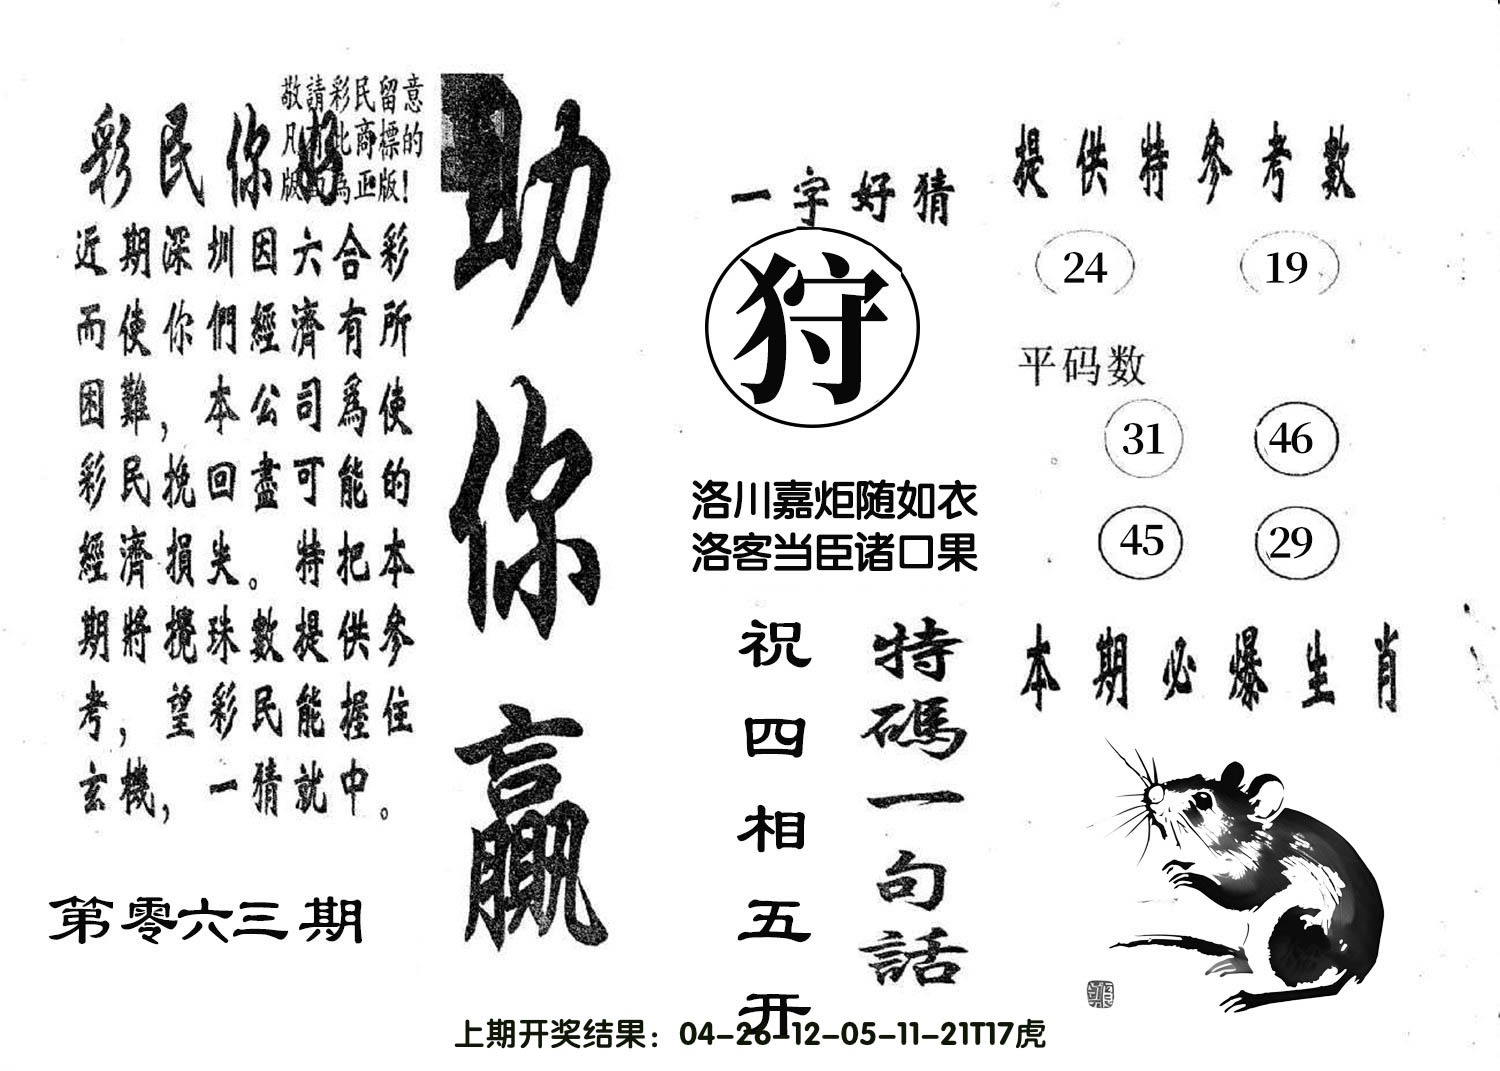 敬請彩民留意
凡有此商標的
版面為正版！
彩民你好
近期深圳因六合彩
而使你們經濟有所
困難，本公司爲使
彩民挽回盡可能的
經濟損失。特把本
期將攪珠數提供參
考，望彩民能握住
玄機，一猜就中。
第零六三期
助你贏
一字好猜
狩
洛川嘉炬随如衣
洛客当臣诸口果
特碼一句話
祝四相五开
提供特參考數
24 19
平码数
31 46
45 29
本期必爆生肖
上期开奖结果：04-26-12-05-11-21T17虎